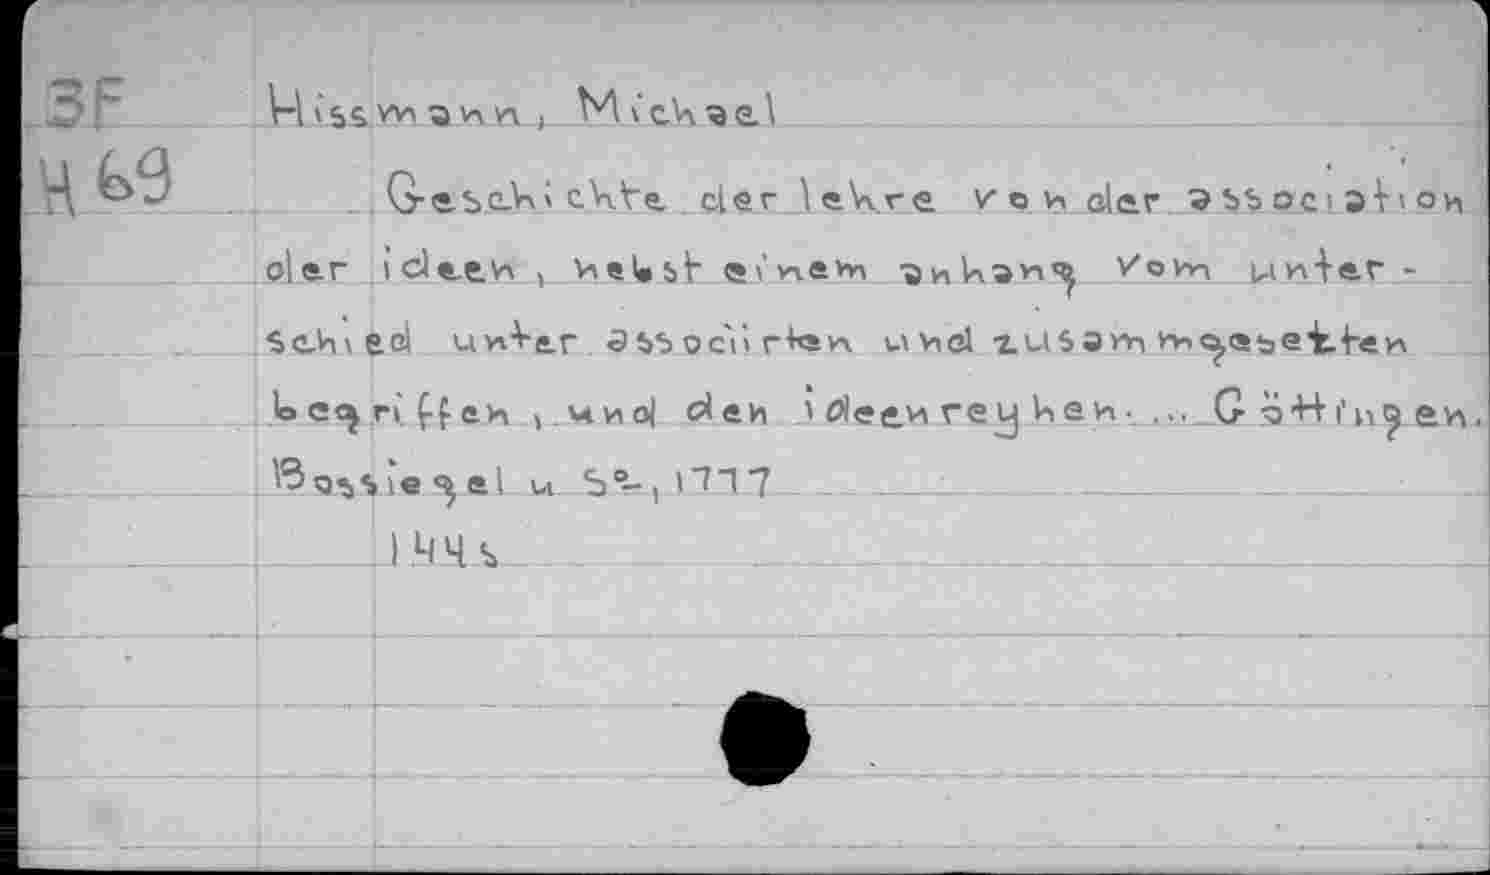 3F Hissmann, Michael
H69 Geschichte der lehre von der association
der ideen, nebst einem anhang vom unter-
schied unter associirten und zusammgesetzten
begriffen, und den ideenreyhen. ... Göttingen.
Bossiegel u Sº-, 1777
144s